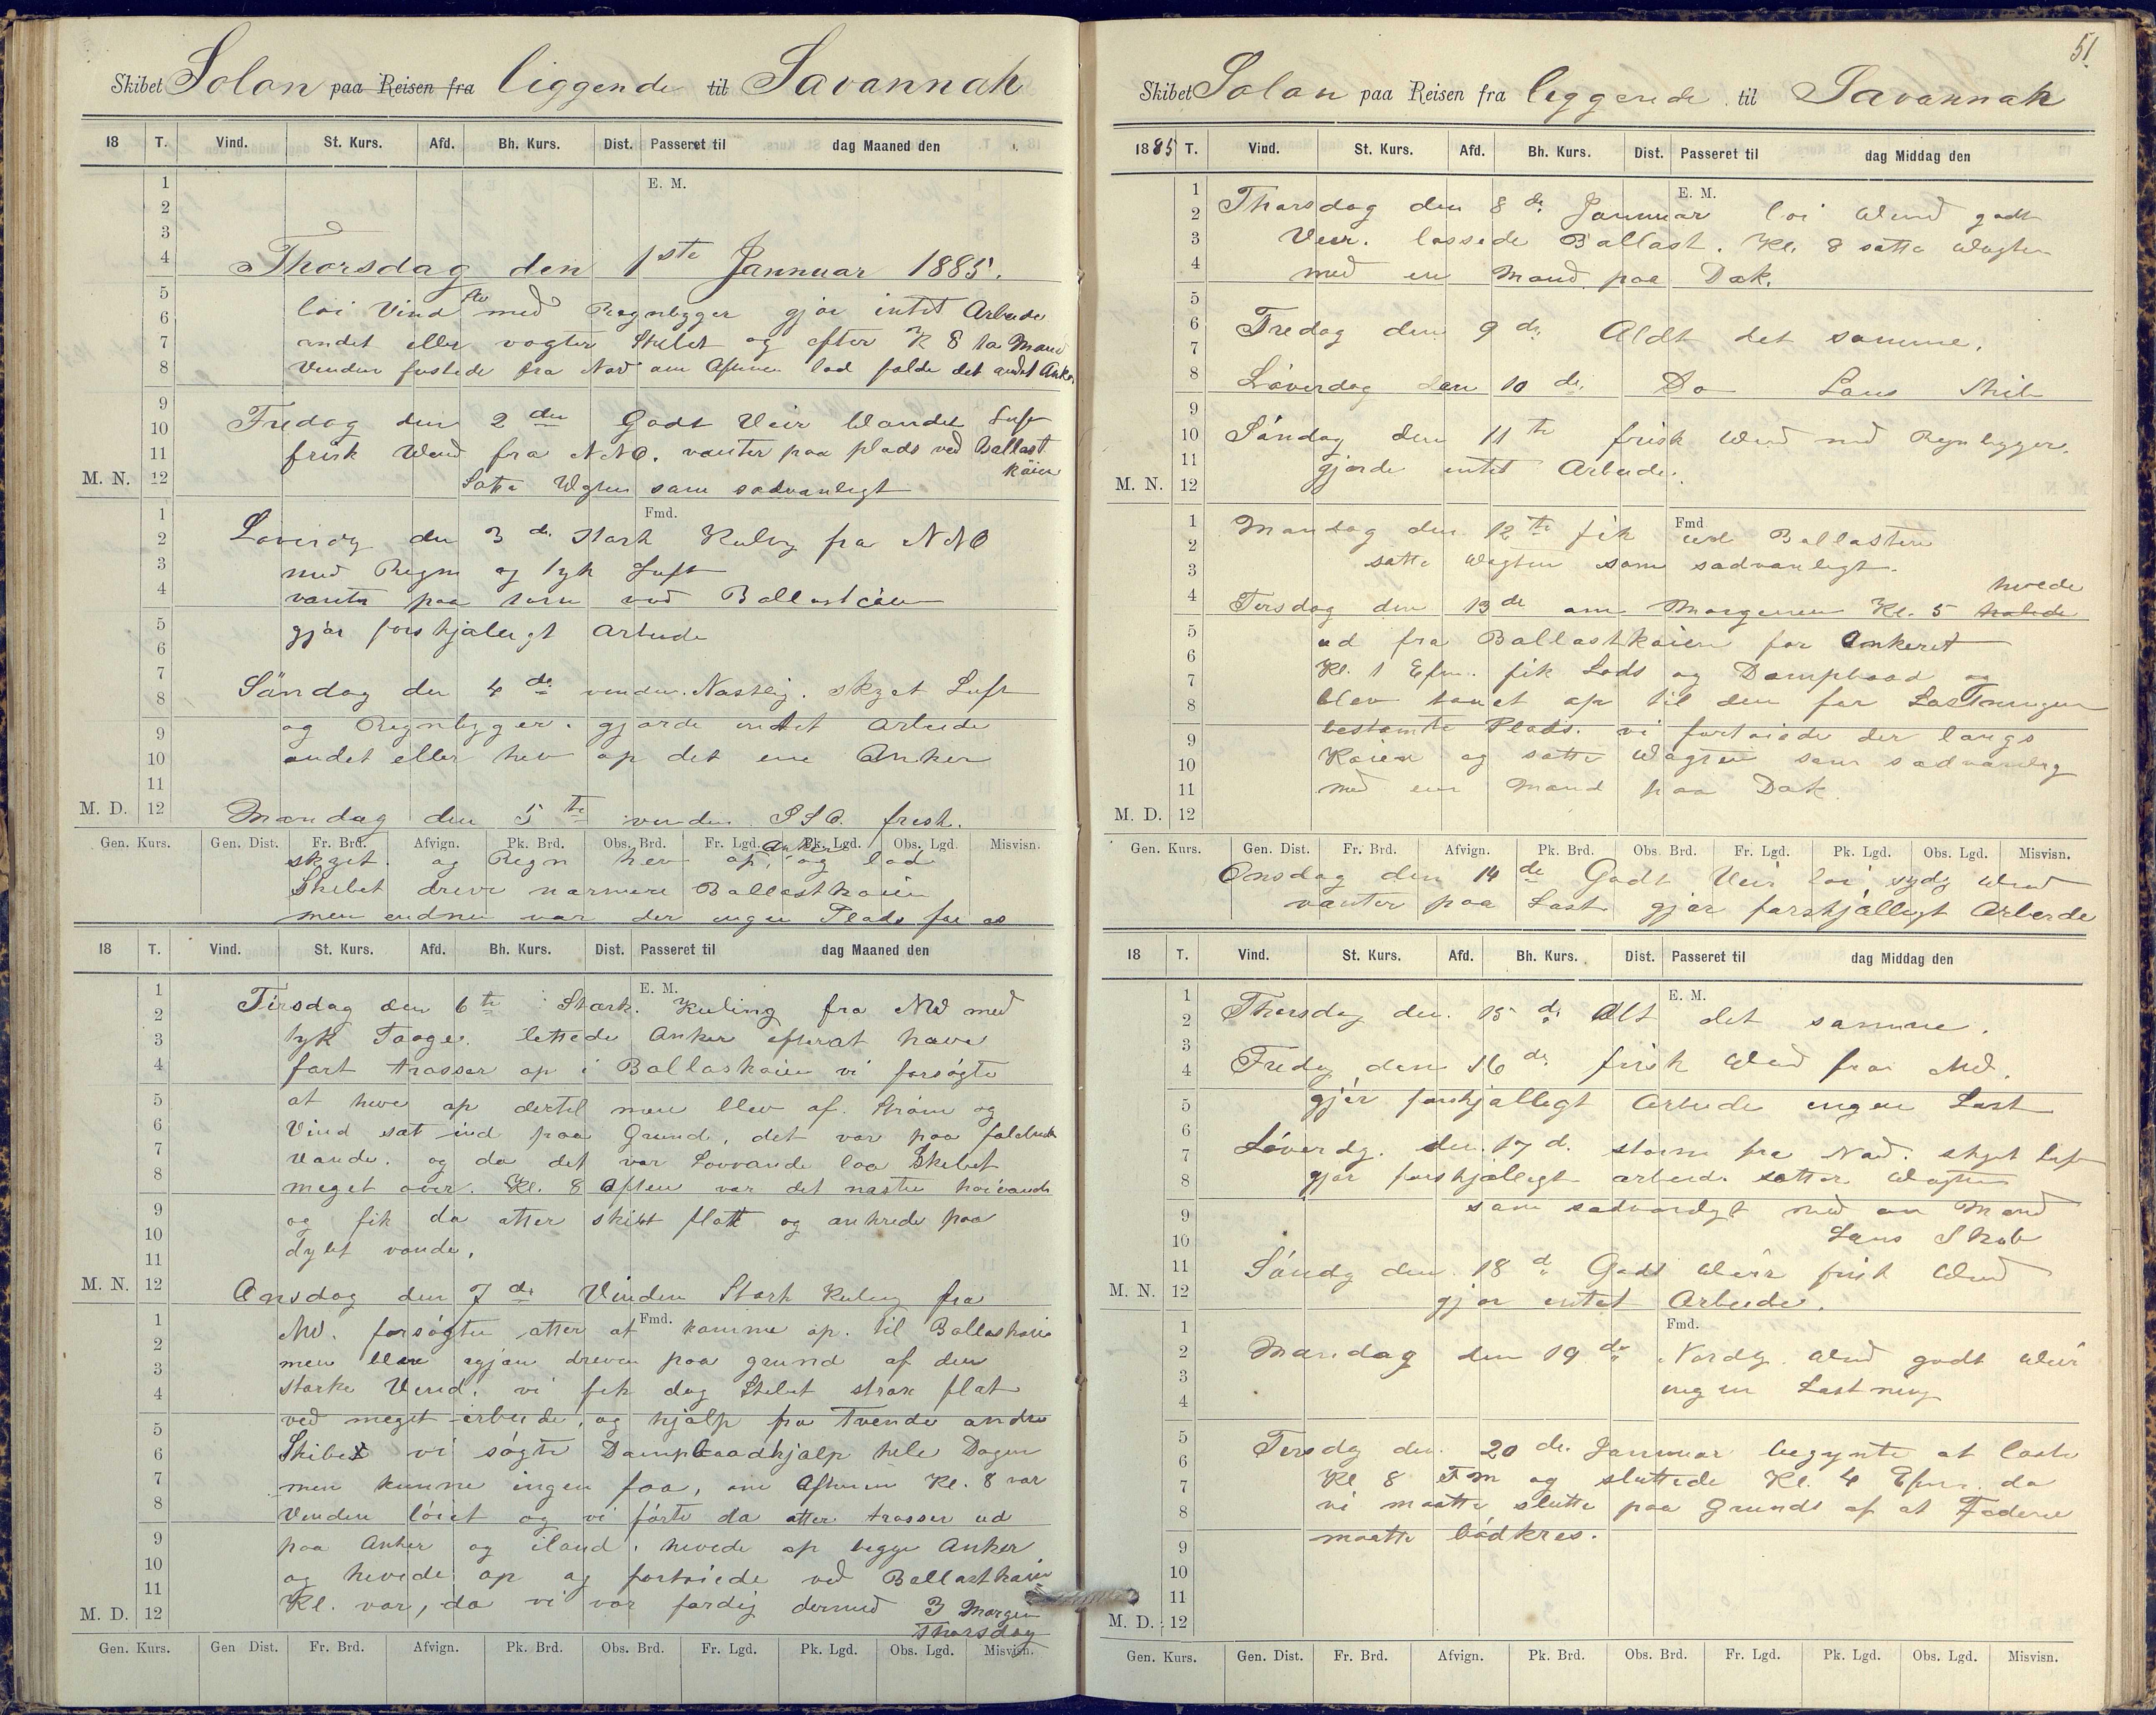 Skibet Solon paa Reisen fra liggende til Savannah
18 T. Vind. St. Kurs. Afd. Bh. Kurs. Dist. Passeret til dag Maaned den
E. M.
Thorsdag den 1ste Jannuar 1885.
löi Vind med Regnbyger gjör intet Arbeide
andet eller vogter Skibet og efter K 8 to Mand
Vinden friskede fra Nord om Aftenen lod falde det andet Anker
Fredag den 2den Godt Veir blandet Luft
frisk Wind fra NNO. venter paa plads ved Ballast
kaien
Satte Wagten som sædvanligt
M. N.
Fmd.
Löverdg den 3de Stærk Kuling fra NNO
med Regn og tyk Luft
venter paa torn ved Ballastkaien
gjör forskjæligt arbeide
Söndag den 4de vinden Nostlig. skyet Luft
og Regnbyger. gjorde intet arbeide
andet eller hev op det ene Anker
M. D.
Mandag den 5te vinden SSO. frisk.
Gen. Kurs. Gen. Dist. Fr. Brd. Afvign. Pk. Brd. Obs. Brd. Fr. Lgd. Pk. Lgd. Obs. Lgd. Misvisn.
skyet. og Regn hev op Anker og lod
Skibet drive nærmere Ballastkaien
men endnu var der ingen Plads for os
18 T. Vind. St. Kurs. Afd. Bh. Kurs. Dist. Passeret til dag Maaned den
E. M.
Tirsdag den 6te Stærk. Kuling fra NW med
tyk Taage. lettede Anker efterat have
fört trosser op i Ballaskaien vi forsögte
at hive op dertil men blev af Ström og
Vind sat ind paa Grund, det var paa faldende
Vande. og da det var Lovvande laa Skibet
meget over. Kl. 8 Aften var det næste höivande
og fik da atter skibet flott og ankrede paa
dybt vande.
M. N.
Onsdag den 7de Vinden Stærk Kuling fra
Fmd.
NW. forsögte atter at komme op. til Ballaskaie
men blev igjen dreven paa grund af den
stærke Vind. vi fik dog Skibet strax flot
ved meget arbeide, og hjælp fra tvende andre
Skibe vi sögte Dampbaadhjælp hele Dagen
men kunne ingen faa, om Aftenen Kl. 8 var
Vinden löiet og vi förte da atter trosser ud
paa Anker og iland. hevede op begge Anker
og hevede op og fortöiede ved Ballastkaien
Kl. var, da vi var færdig dermed 3 Morgen
Thorsdag
M. D.
Gen. Kurs. Gen Dist. Fr. Brd. Afvign. Pk. Brd. Obs. Brd. Fr. Lgd. Pk. Lgd. Obs. Lgd. Misvisn.
51
Skibet Solon paa Reisen fra liggende til Savannah
1885 T. Vind. St. Kurs. Afd. Bh. Kurs. Dist. Passeret til dag Middag den
E. M.
Thorsdag den 8de Jannuar löi Wind godt
Veir. lossede Ballast. Kl. 8 satte Wagten
med en Mand paa Dæk.
Fredag den 9de Aldt det samme.
Löverdag den 10de Do Læns Skib
Söndag den 11te frisk Wind med Regnbyger.
gjorde intet Arbeide.
M. N.
Fmd
Mandag den 12te fik ud Ballasten
satte Wagten som sædvanligt.
hivede
Tirsdag den 13de om Morgenen Kl. 5 halede
ud fra Ballastkaien for Ankeret
Kl. 1 Efm. fik Lods og Dampbaad og
blev tauet op til den for Lastningen
bestemte Plads. vi fortöiede der langs
Kaien og satte Wagten som sædvanlig
med en Mand paa Dæk.
M. D.
Gen. Kurs. Gen. Dist. Fr. Brd. Afvign. Pk. Brd. Obs. Brd. Fr. Lgd. Pk. Lgd. Obs. Lgd. Misvisn.
Onsdag den 14de Godt Veir löi, sydg Wind
venter paa Last gjör forskjælligt Arbeide
18 T. Vind. St. Kurs. Afd. Bh. Kurs. Dist. Passeret til dag Middag den
E. M.
Thorsdag den 15de Alt det samme.
Fredag den 16de frisk Wind fra NW.
gjör forskjælligt Arbeide ingen Last
Löverdg. den 17d. storm fra Nord. skyet Luft
gjör forskjælligt arbeide sætter Wagten
som sædvanligt med en Mand
Læns Skib
Söndg den 18d Godt Weir frisk Wind
M. N.
gjör intet Arbeide.
Fmd.
Mandag den 19de Nordg. Wind godt Weir
ingen Lastning
Tirsdg den 20de Jannuar begynte at laste
Kl 8 Fm og sluttede Kl. 4 Efm. da
vi maatte slutte paa Grunds af at Fadene
maatte bödkres.
M. D.
Gen. Kurs. Gen. Dist. Fr. Brd. Afvign. Pk. Brd. Obs. Brd. Fr. Lgd. Pk. Lgd. Obs. Lgd. Misvisn.